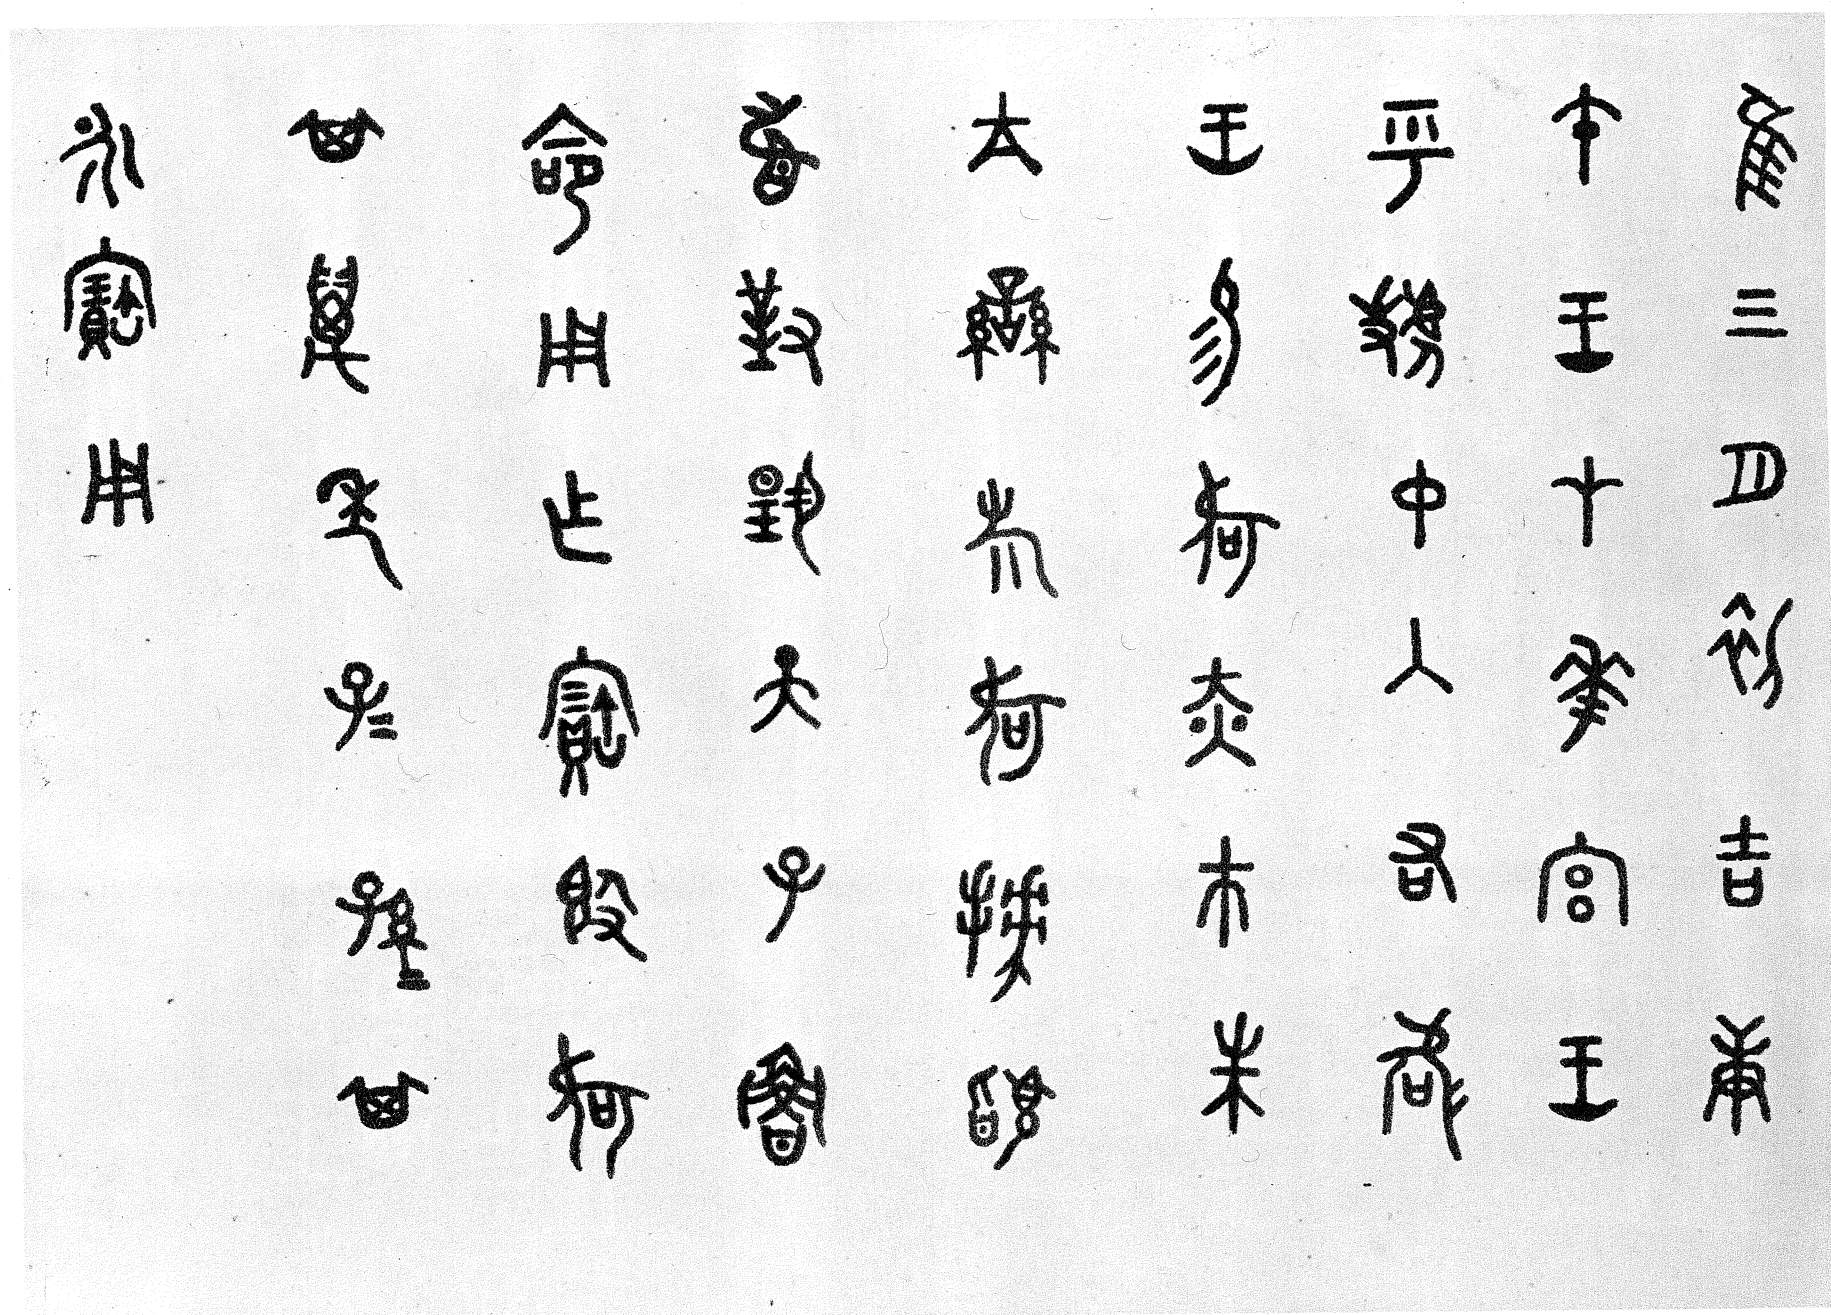 隹三月初吉庚
午王才華宮王
乎虢中入右何
王易何赤巿朱
亢䜌旂何拜𩒨
首對揚天子魯
命用乍寶𣪘何
其萬年子=孫=其
永寶用